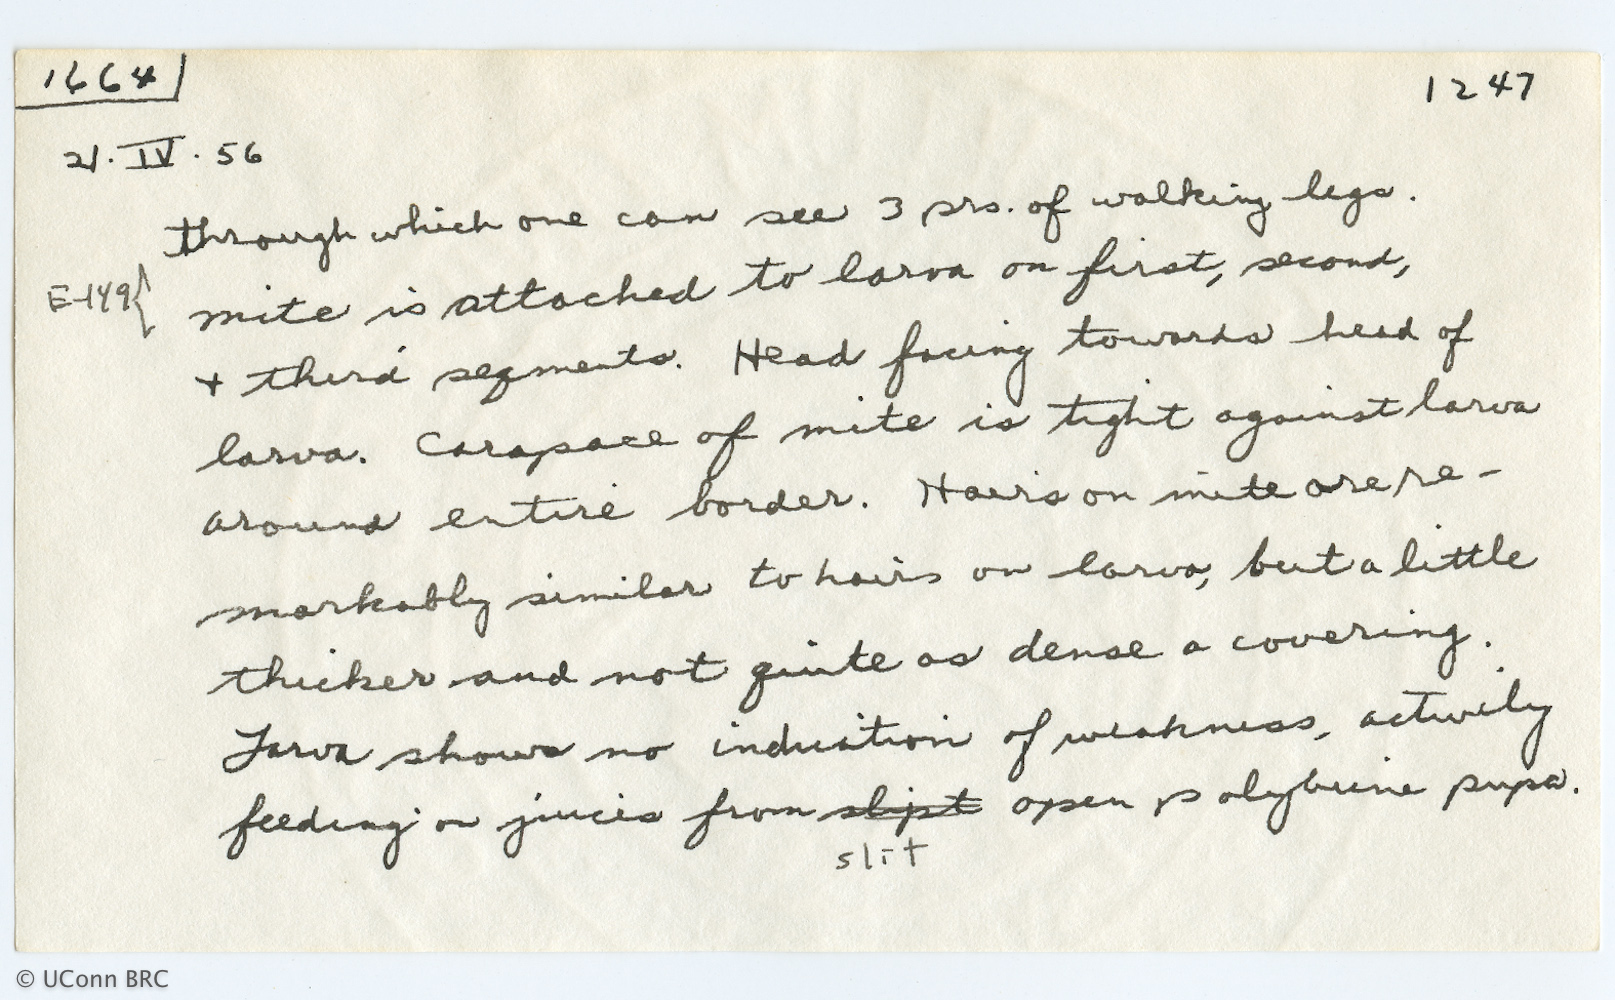 1664
1247
21.IV.56
through which one can see 3 prs. of walking legs.
E-149{ mite is attached to larva on first, second,
+ third segments. Head facing towards head of
larva. Carapace of mite is tight against larva
around entire border. Hairs on mite are re-
markably similar to hairs on larva, but a little
thicker and not quite as dense a covering.
Larva shows no indication of weakness, actively
feeding on juices from slipt open polybiine pupa.
slit
© UConn BRC